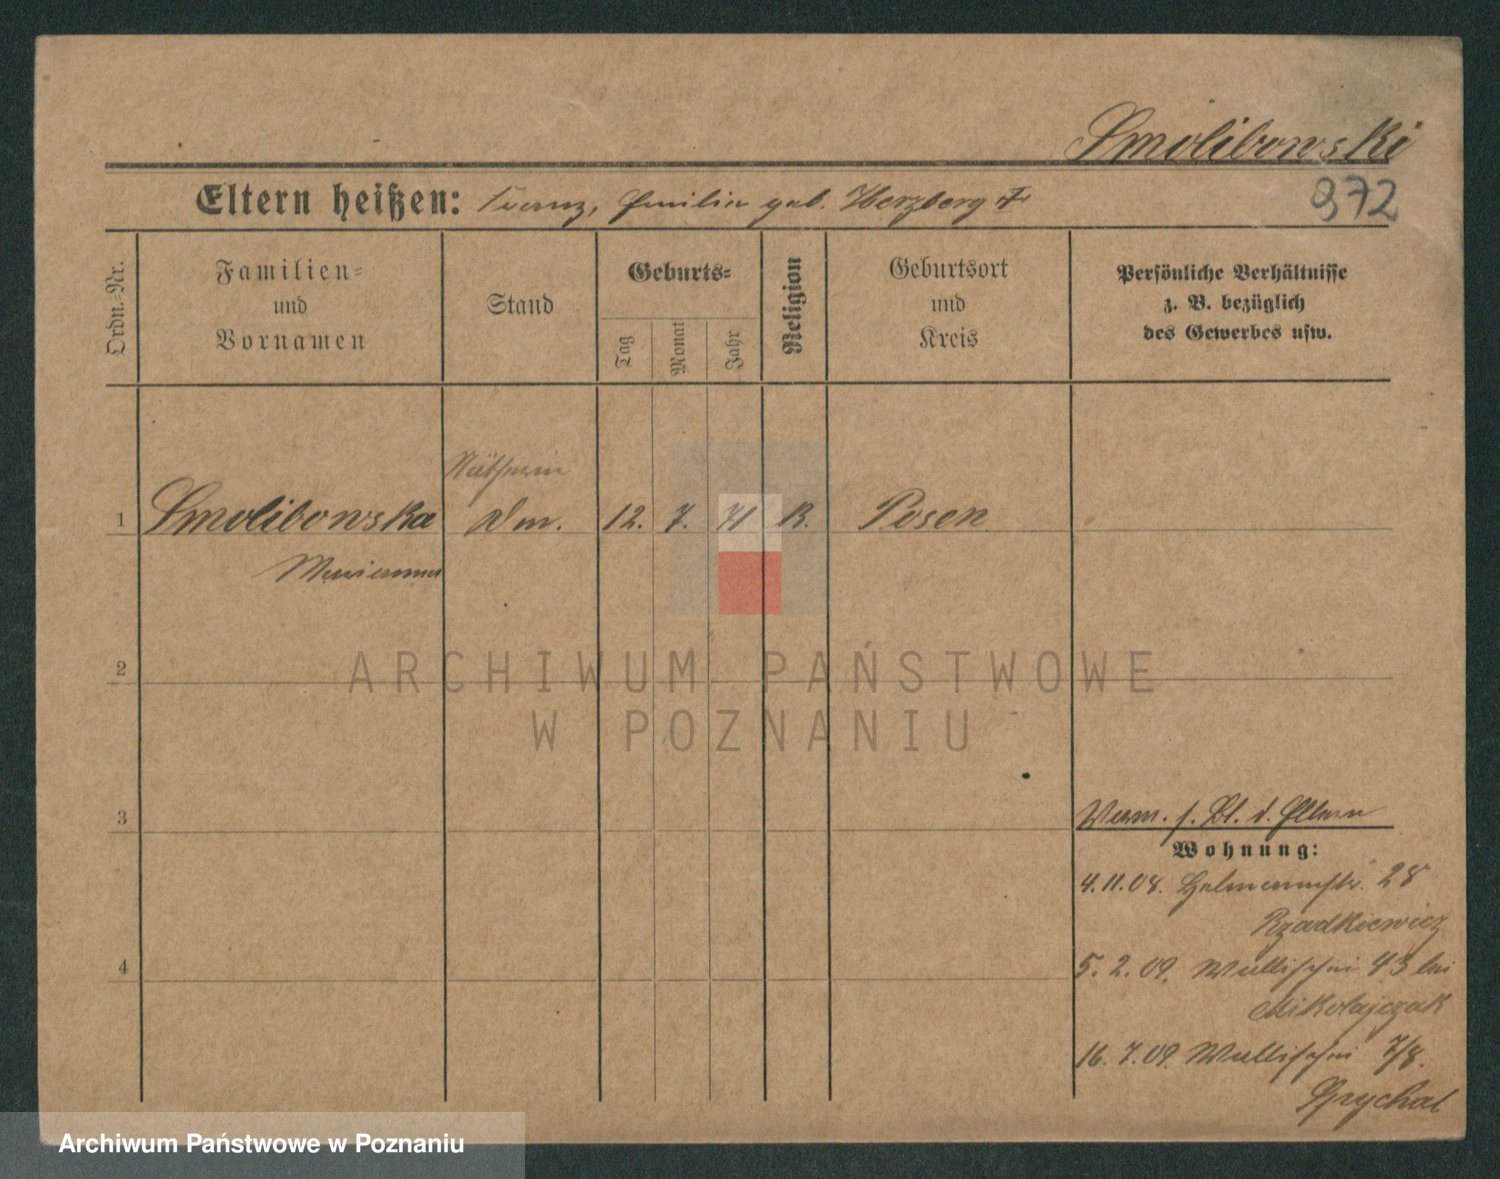 Smolibowski
Eltern heißen: Franz, Emilia geb. Herzberg †
972
Ordn.=Nr.
Familien=
und
Vornamen
Stand
Geburts=
Tag
Monat
Jahr
Religion
Geburtsort
und
Kreis
Persönliche Verhältnisse
z. B. bezüglich
des Gewerbes usw.
Näherin
1 Smolibowska 12. 7. 71 K. Posen
Marianna
2
ARCHIWUM PAŃSTWOWE
W POZNANIU
3 Verm. s. Bl. d. Eltern
Wohnung:
4.11.08. 28
Rzadkiewicz
4 5. 2. 09. Wallischei 43 bei
Mikołajczak
16. 7. 09. Wallischei 7/8.
Grychal
Archiwum Państwowe w Poznaniu